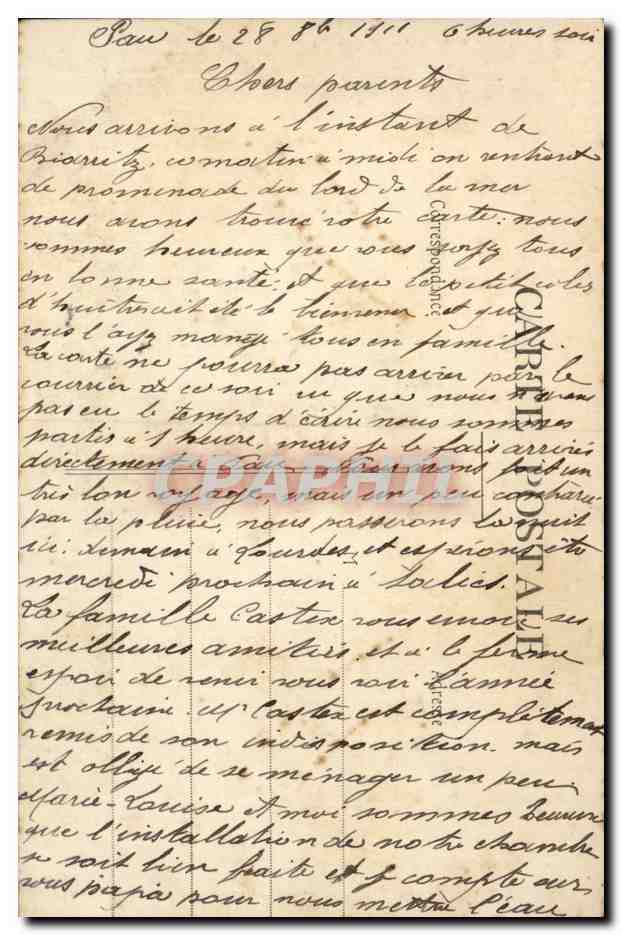 Pau le 28 8b 1911 6 heures soir
Chers parents
Nous arrivons à l'instant de
Biarritz, ce matin à midi en rentrant
de promenade du bord de la mer
nous avons trouvé votre carte: nous
sommes heureux que vous soyez tous
en bonne santé; et que le petit colis
d'huîtres ait été le bienvenu et que
vous l'ayz mangé tous en famille.
La carte ne pourra pas arriver par le
courrier de ce soir vu que nous n'avons
pas eu le temps d'écrire nous sommes
partis à 1 heure, mais je le fais arrivés
directement à Pau. Nous avons fait un
très bon voyage, mais un peu contrarié
par la pluie, nous passerons la nuit
ici: demain à Lourdes, et espérons être
mercredi prochain à Salies.
La famille Castex vous envoie ses
meilleures amitiés et a le ferme
espoir de venir vous voir l'année
prochaine. Mr Castex est complètement
remis de son indisposition. mais
est obligé de se ménager un peu.
Marie-Louise et moi sommes heureux
que l'installation de notre chambre
se soit bien faite et je compte sur
vous papa pour nous mettre l'eau
CARTE POSTALE
Correspondance
Adresse
CPAPHIL